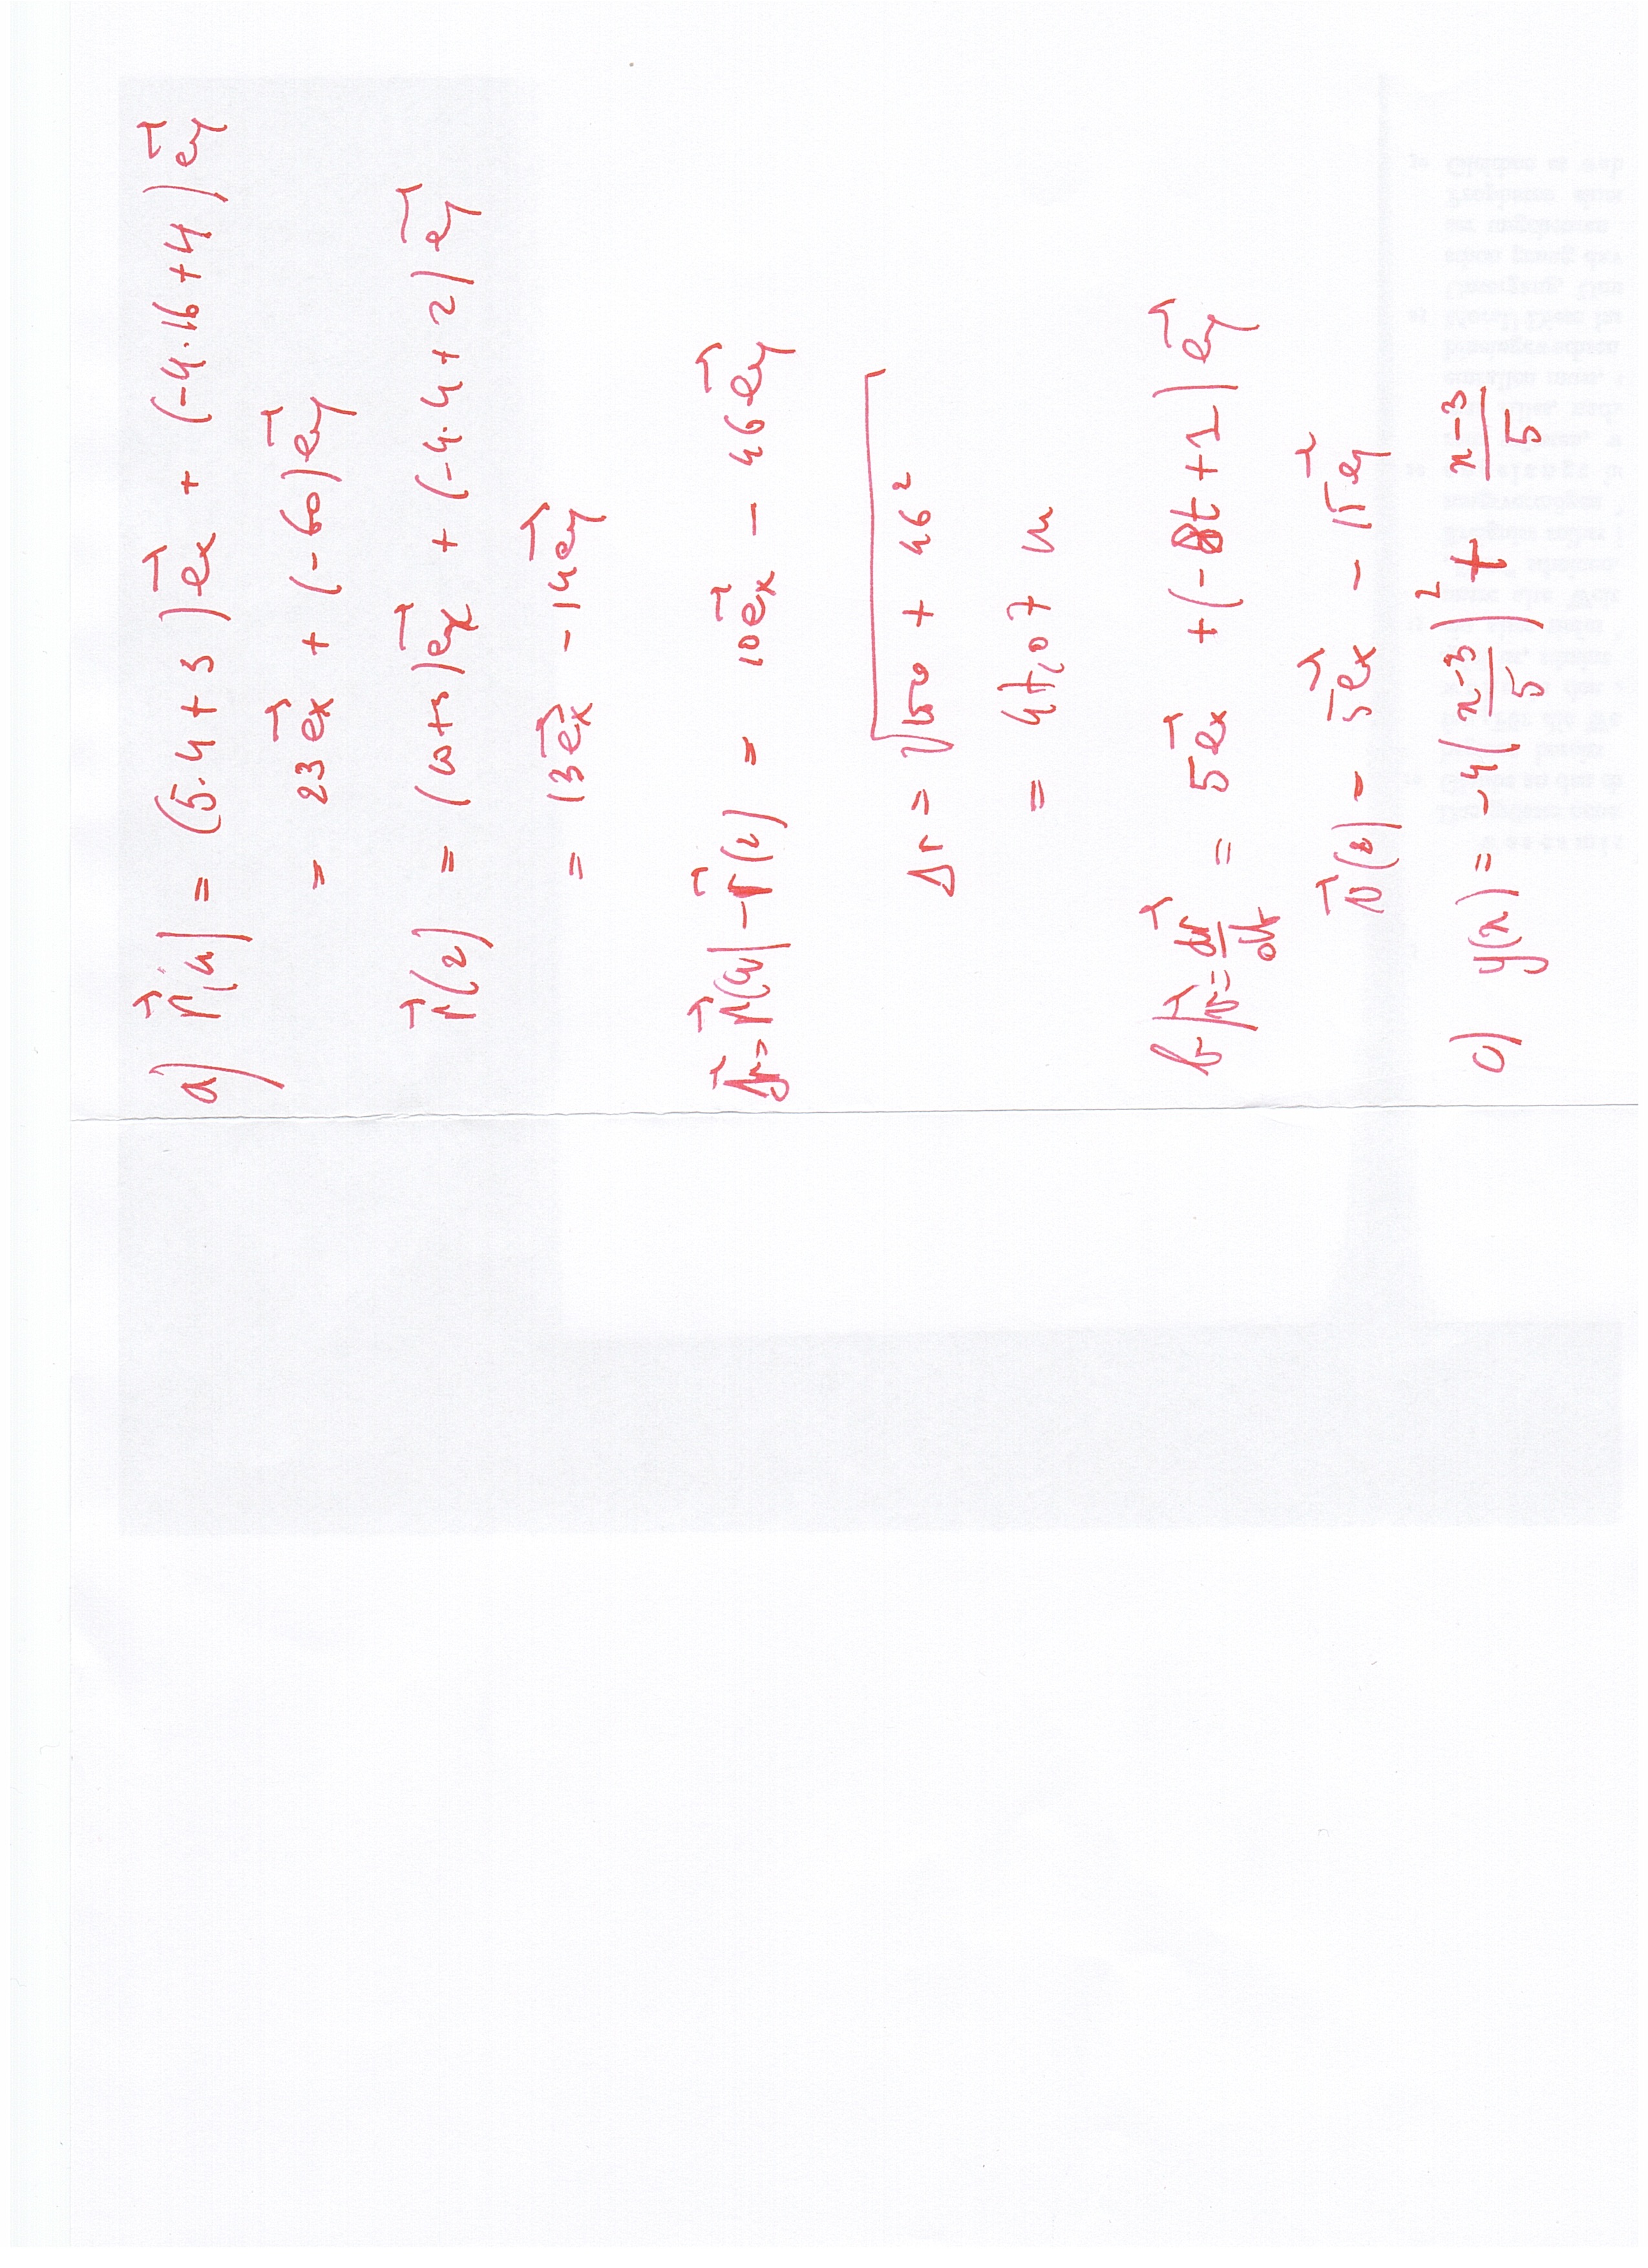 a) r⃗(4) = (5·4+3)e⃗x + (-4·16+4)e⃗y
= 23e⃗x + (-60)e⃗y
r⃗(2) = (10+3)e⃗x + (-4·4+2)e⃗y
= 13e⃗x - 14e⃗y
Δr⃗ = r⃗(4) - r⃗(2) = 10e⃗x - 46e⃗y
Δr = √(100 + 46²)
= 47,07 m
b) v⃗ = dr⃗/dt = 5e⃗x + (-8t+1)e⃗y
v⃗(2) = 5e⃗x - 15e⃗y
c) y(x) = -4((x-3)/5)² + (x-3)/5